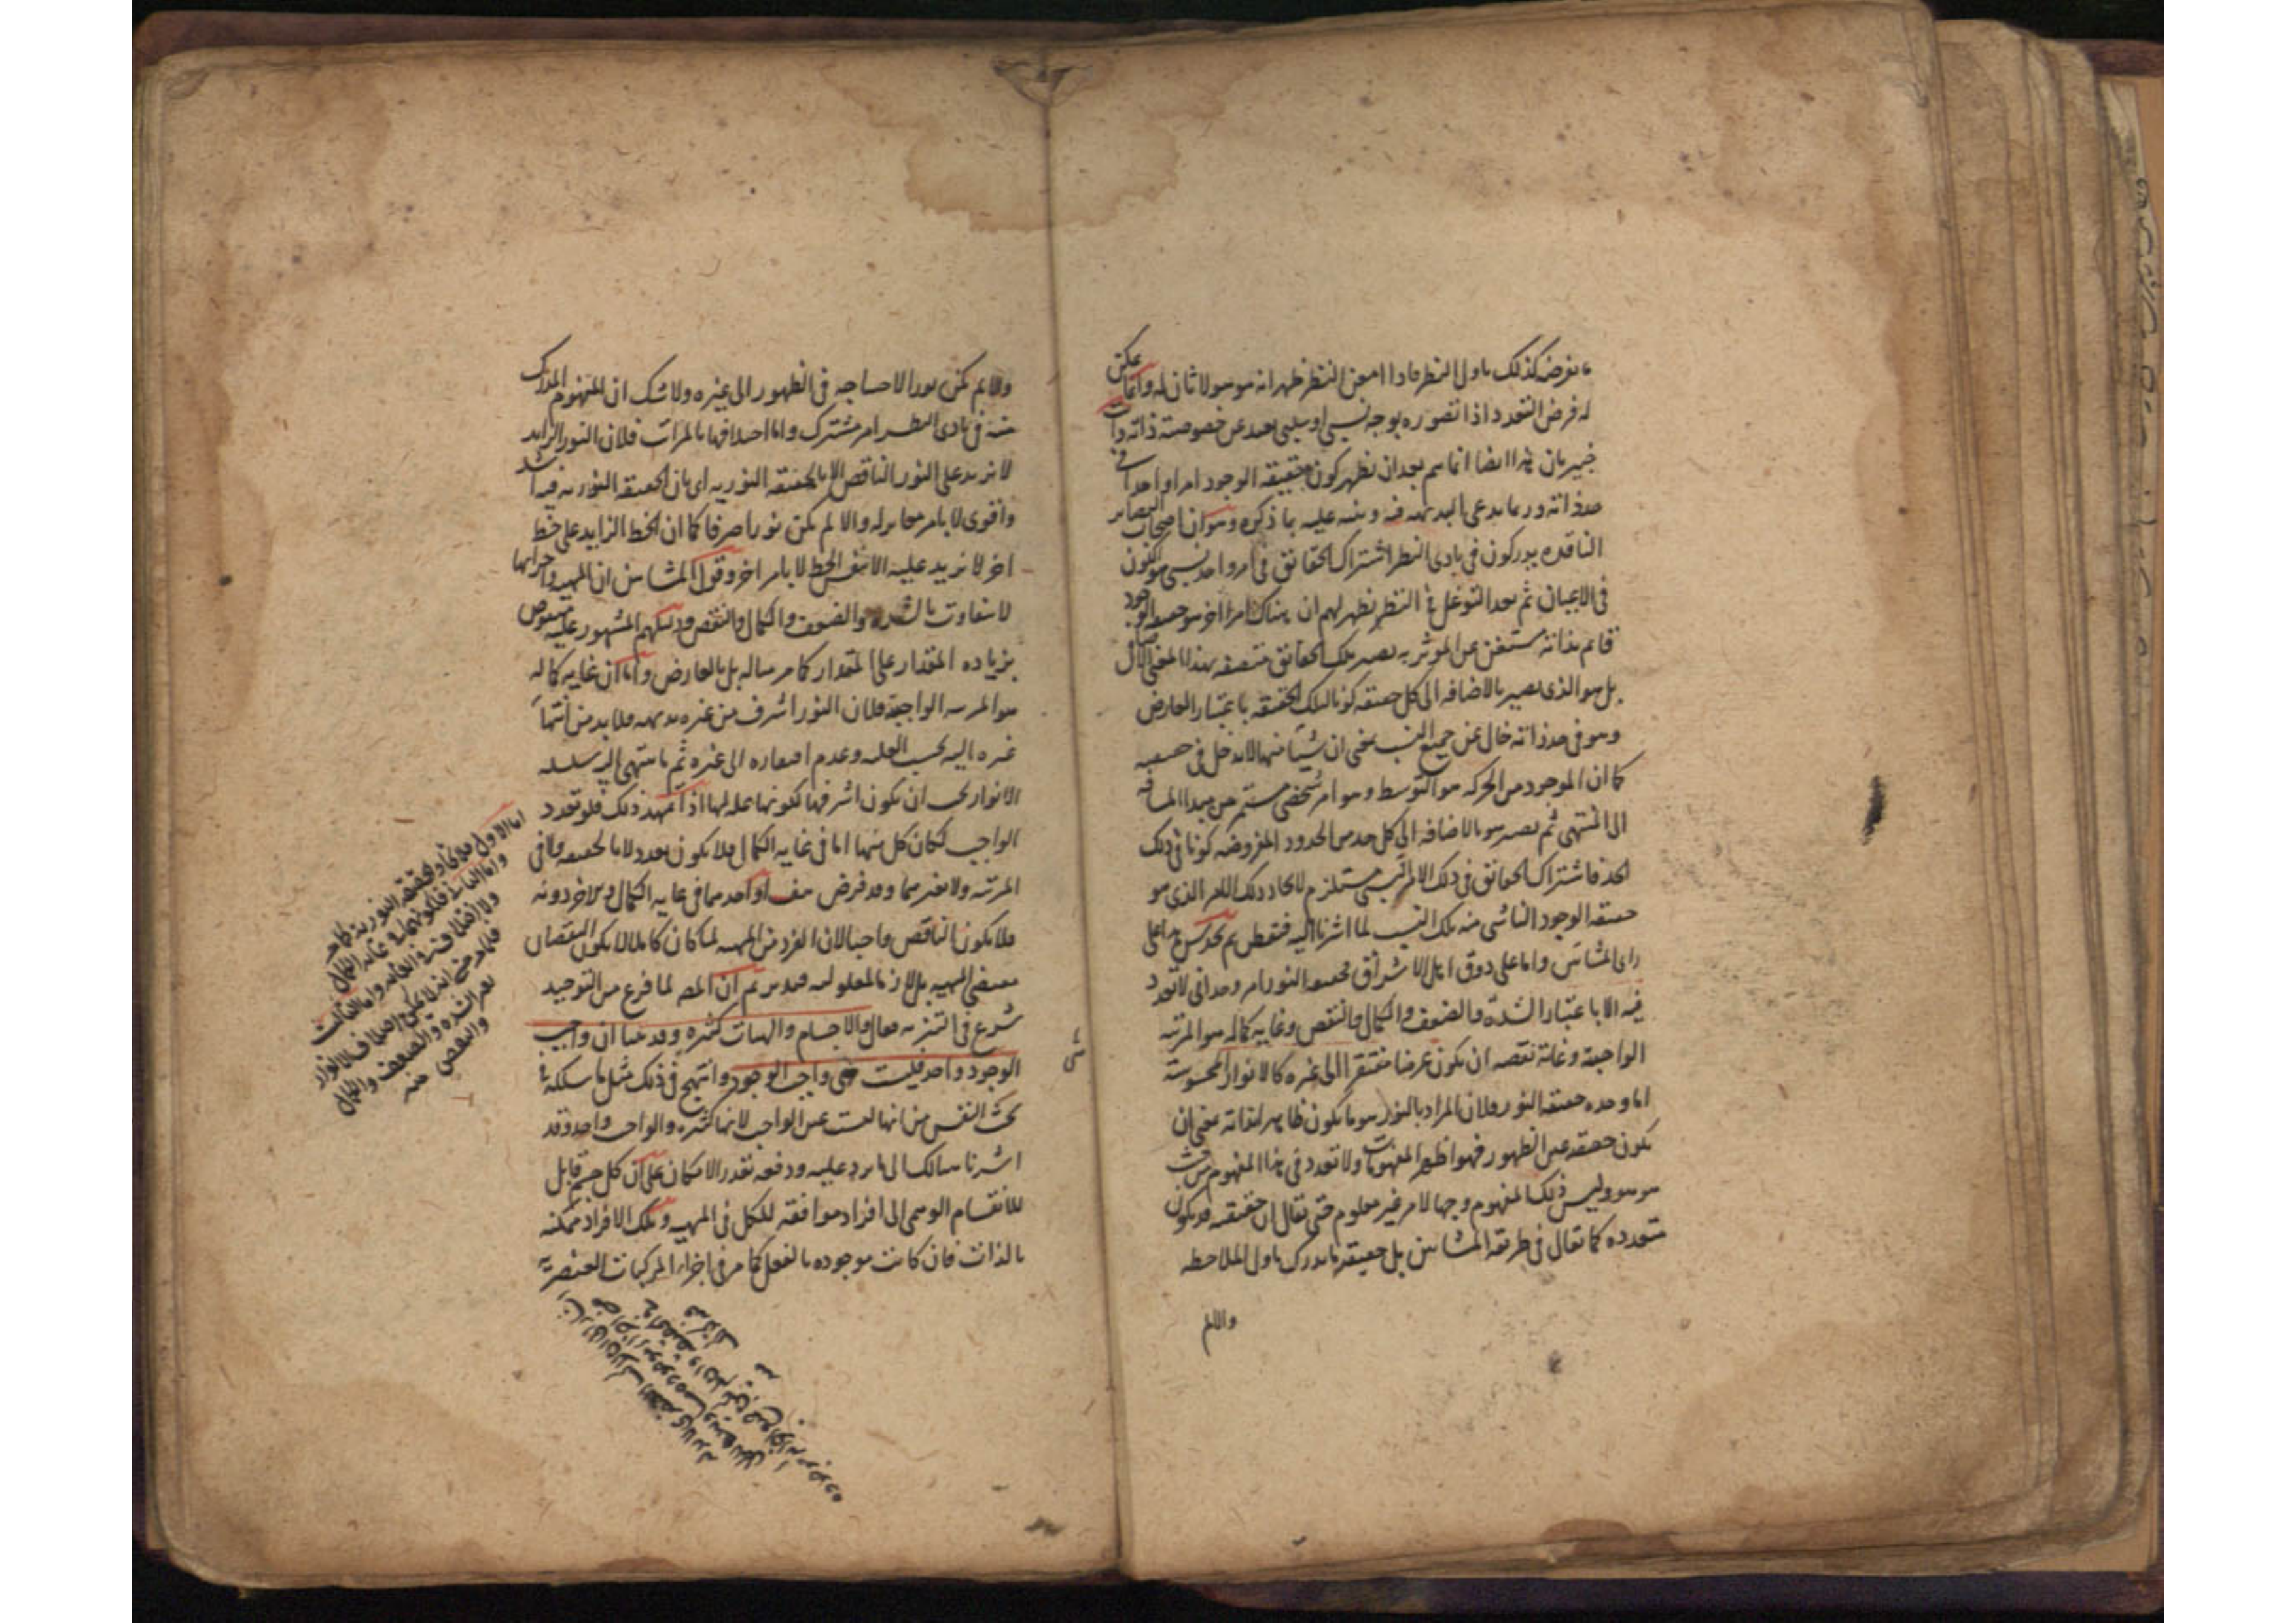 ما نفرضه كذلك باول النظر فاذا امعن النظر ظهر انه هو هو لا ثان له وانما يمكن
له فرض التعدد اذا تصوره بوجه نسبي او سلبي بعيد عن خصوصية ذاته وانت
خبير بان هذا ايضا انما يتم بعد ان يظهر كون حقيقة الوجود امرا واحدا في
حد ذاته وربما يدعى البديهة فيه وينبه عليه بما ذكره وهو ان اصحاب البصائر
الناقدة يدركون في بادى النظر اشتراك الحقائق في امر واحد نسبي هو الكون
في الاعيان ثم بعد التوغل في النظر يظهر لهم ان هناك امرا اخر هو حقيقة الوجود
قائم بذاته مستغن عن المؤثر به يصير تلك الحقائق متصفة بهذا المعنى
بل هو الذي يصير بالاضافة الى كل حقيقة كونا لتلك الحقيقة باعتبار العارض
وهو في حد ذاته خال عن جميع النسب بمعنى ان شيئا منها لا يدخل في حقيقته
كما ان الموجود من الحركة هو التوسط وهو امر شخصي مستمر من مبدا المسافة
الى المنتهى ثم يصير هو بالاضافة الى كل حد من الحدود المفروضة كونا في ذلك
الحد فاشتراك الحقائق في ذلك الامر النسبي مستلزم لاتحاد ذلك الامر الذي هو
حقيقة الوجود الناشى منه تلك النسب لما اشرنا اليه فتفطن ثم تحدس هذا على
راى المشائين واما على ذوق اهل الاشراق فحقيقة النور امر وحداني لا تعدد
فيه الا باعتبار الشدة والضعف والكمال والنقص وغاية كماله هو المرتبة
الواجبية وغاية نقصه ان يكون عرضا مفتقرا الى غيره كالانوار المحسوسة
اما وحدة حقيقة النور فلان المراد بالنور هو ما يكون ظاهرا لذاته بمعنى ان
يكون حقيقته عين الظهور فهو اظهر المفهومات ولا تعدد في هذا المفهوم من حيث
هو هو وليس ذلك المفهوم وجها لامر غير معلوم حتى يقال ان حقيقته قد يكون
متعددة كما يقال في طريقة المشائين بل حقيقة ما يدرك باول الملاحظة
والا لم
والا لم يكن نورا لاحتياجه في الظهور الى غيره ولا شك ان المفهوم المدرك
منه في بادى النظر امر مشترك واما اختلافها بالمراتب فلان النور الزايد
لا يزيد على النور الناقص الا بالحقيقة النورية اى بان الحقيقة النورية فيه اشد
واقوى لا بامر مغاير له والا لم يكن نورا صرفا كما ان الخط الزايد على خط
اخر لا يزيد عليه الا بنفس الخط لا بامر اخر وقول المشائين ان المهية واجزائها
لا يتفاوت بالشدة والضعف والكمال والنقص ودليلهم المشهور عليه منقوض
بزيادة المقدار على المقدار كما مر مثاله بل بالعارض واما ان غاية كماله
هو المرتبة الواجبية فلان النور اشرف من غيره بديهة فلا بد من انتهاء
غيره اليه بحسب العلة وعدم افتقاره الى غيره ثم ما ينتهى اليه سلسلة
الانوار يجب ان يكون اشرفها لكونها علة لها اذا تمهد ذلك فلو تعدد
الواجب لكان كل منها اما في غاية الكمال فلا يكون تعدد لا بالحقيقة ولا في
المرتبة ولا بغيرهما وقد فرض هف او احدهما في غاية الكمال والاخر دونه
فلا يكون الناقص واجبا لان الفرد من المهية لما كان كاملا لا يكون النقصان
مقتضى المهية بل لازما لمعلوليته فتدبر ثم ان المص لما فرغ من التوحيد
شرع في التنزيه فقال والاجسام والهيات كثيرة وقد بينا ان واجب
الوجود واحد فليست هي واجب الوجود وانتهج في ذلك مثل ما سلكه في
بحث النفس من انها ليست عين الواجب لانها كثيرة والواجب واحد وقد
اشرنا سالك الى ما يرد عليه ودفعه بقدر الامكان على ان كل جسم قابل
للانقسام الوهمى الى افراد موافقة للكل في المهية وتلك الافراد ممكنة
بالذات فان كانت موجودة بالفعل كما مر في اجزاء المركبات العنصرية